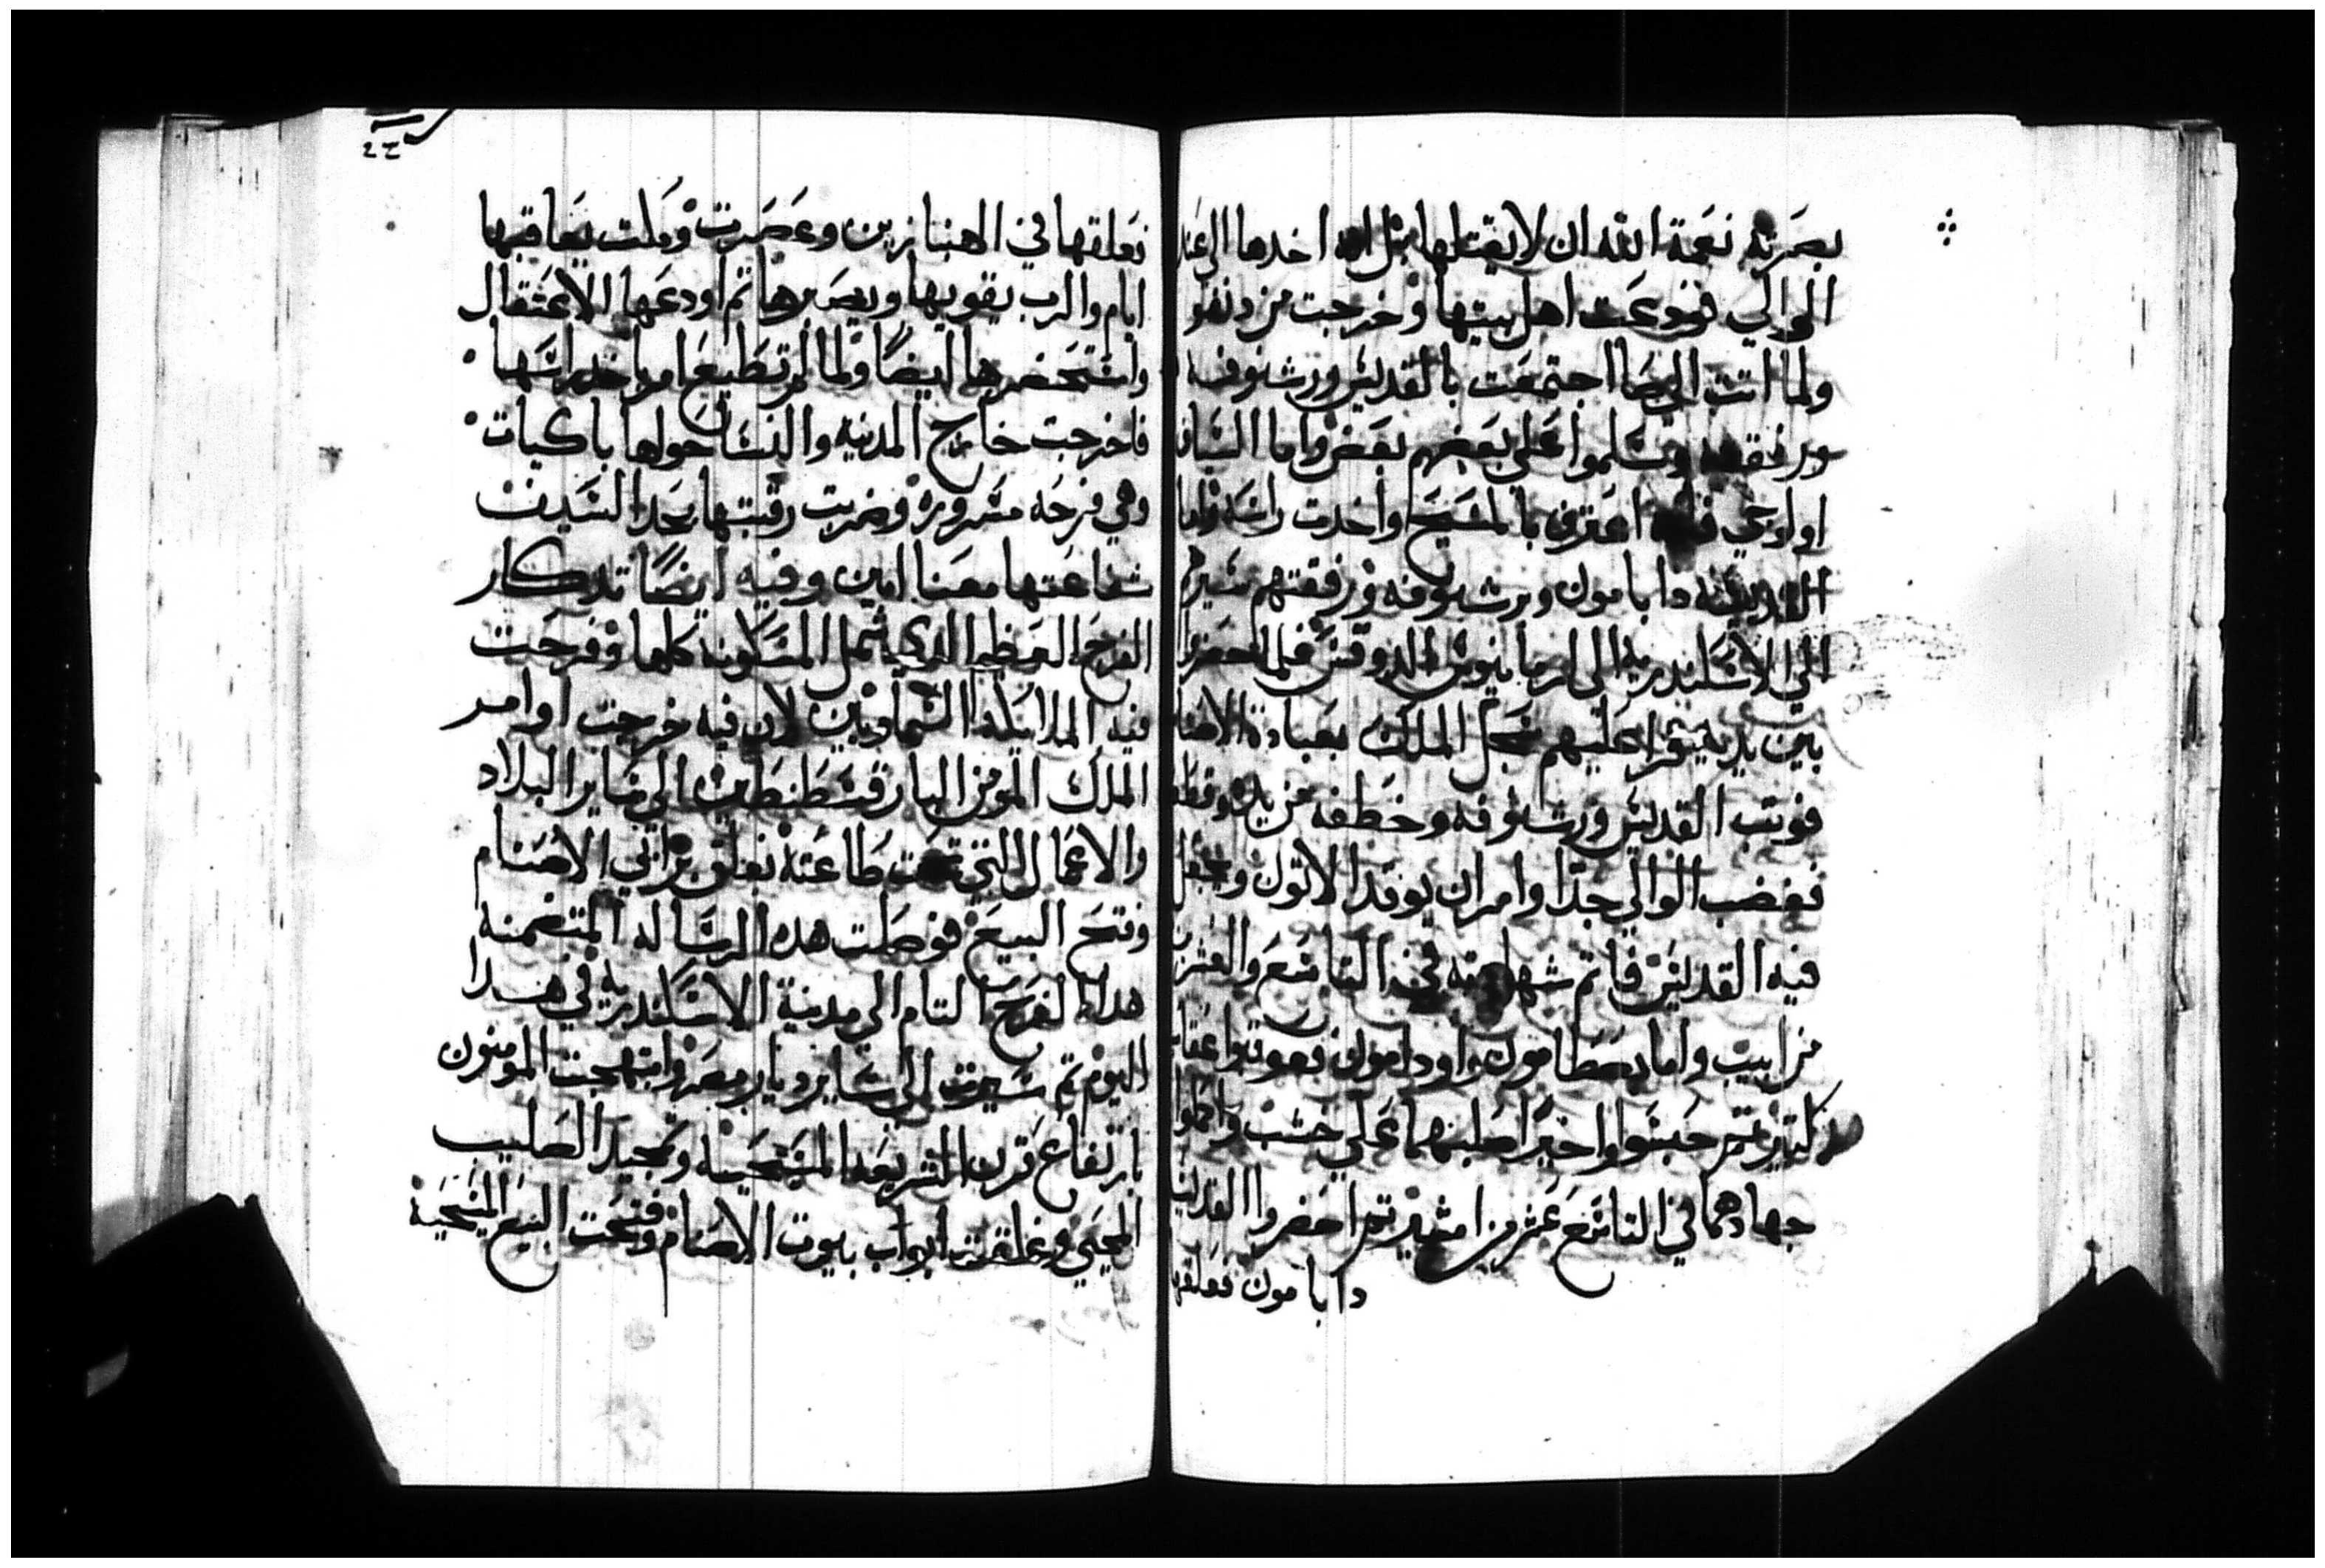 بصرته نعمة الله ان لا يقتلها بل اخدها الى عند
الوالي فودعت اهل بيتها وخرجت من دنفو
ولما اتت الى صا اجتمعت بالقديس ورشنوفه
ورفقته وسلموا على بعضهم بعض واما الشاب
اولوجي فانه اعترف بالمسيح واخدت راسه واما
القديسه دابامون وبرشنوفه ورفقتهم سيرهم
الى الاسكندريه الى ارمانيوس الدوقس فلما احضروا
بين يديه يقرا عليهم سجل الملك بعبادة الاصنا
فوتب القديس ورشنوفه وخطفه من يده وقطعه
فغضب الوالي جدا وامر ان يوقدا الاتون وجعل
فيه القديس فاتم شهادته في التاسع والعشرين
من ابيب واما بصطامون واودامون فعوقبوا عقاب
كتير تم حبسوا واخيرا صلبهما على خشب واكملوا
جهادهما في التاسع عشر من امشير تم احضروا القديسه
دابامون فعلقها
فعلقها في الهنبازين وعصرت وملت يعاقبها
ايام والرب يقويها ويصبرها تم اودعها الاعتقال
واستحضرها ايضا ولما لم تطيع امر باخد راسها
فاخرجت خارج المدينه والنسا حولها باكيات
وهي فرحه مسروره وضربت رقبتها بحد السيف
شفاعتها معنا امين وفيه ايضا تدكار
الفرح العظيم الدي شمل المسكونه كلها وفرحت
فيه الملايكه السماويين لان فيه خرجت اوامر
الملك المومن البار قسطنطين الى ساير البلاد
والاعمال التي تحت طاعته بغلق برابي الاصنام
وفتح البيع فوصلت هده الرساله المتضمنه
هدا الفرح التام الى مدينة الاسكندريه في هدا
اليوم تم سيرت الى ساير ديار مصر وابتهجت المومنون
بارتفاع قرن الشريعه المسيحيه وتمجيد الصليب
المحيي وغلقت ابواب بيوت الاصنام وفتحت البيع المسيحية